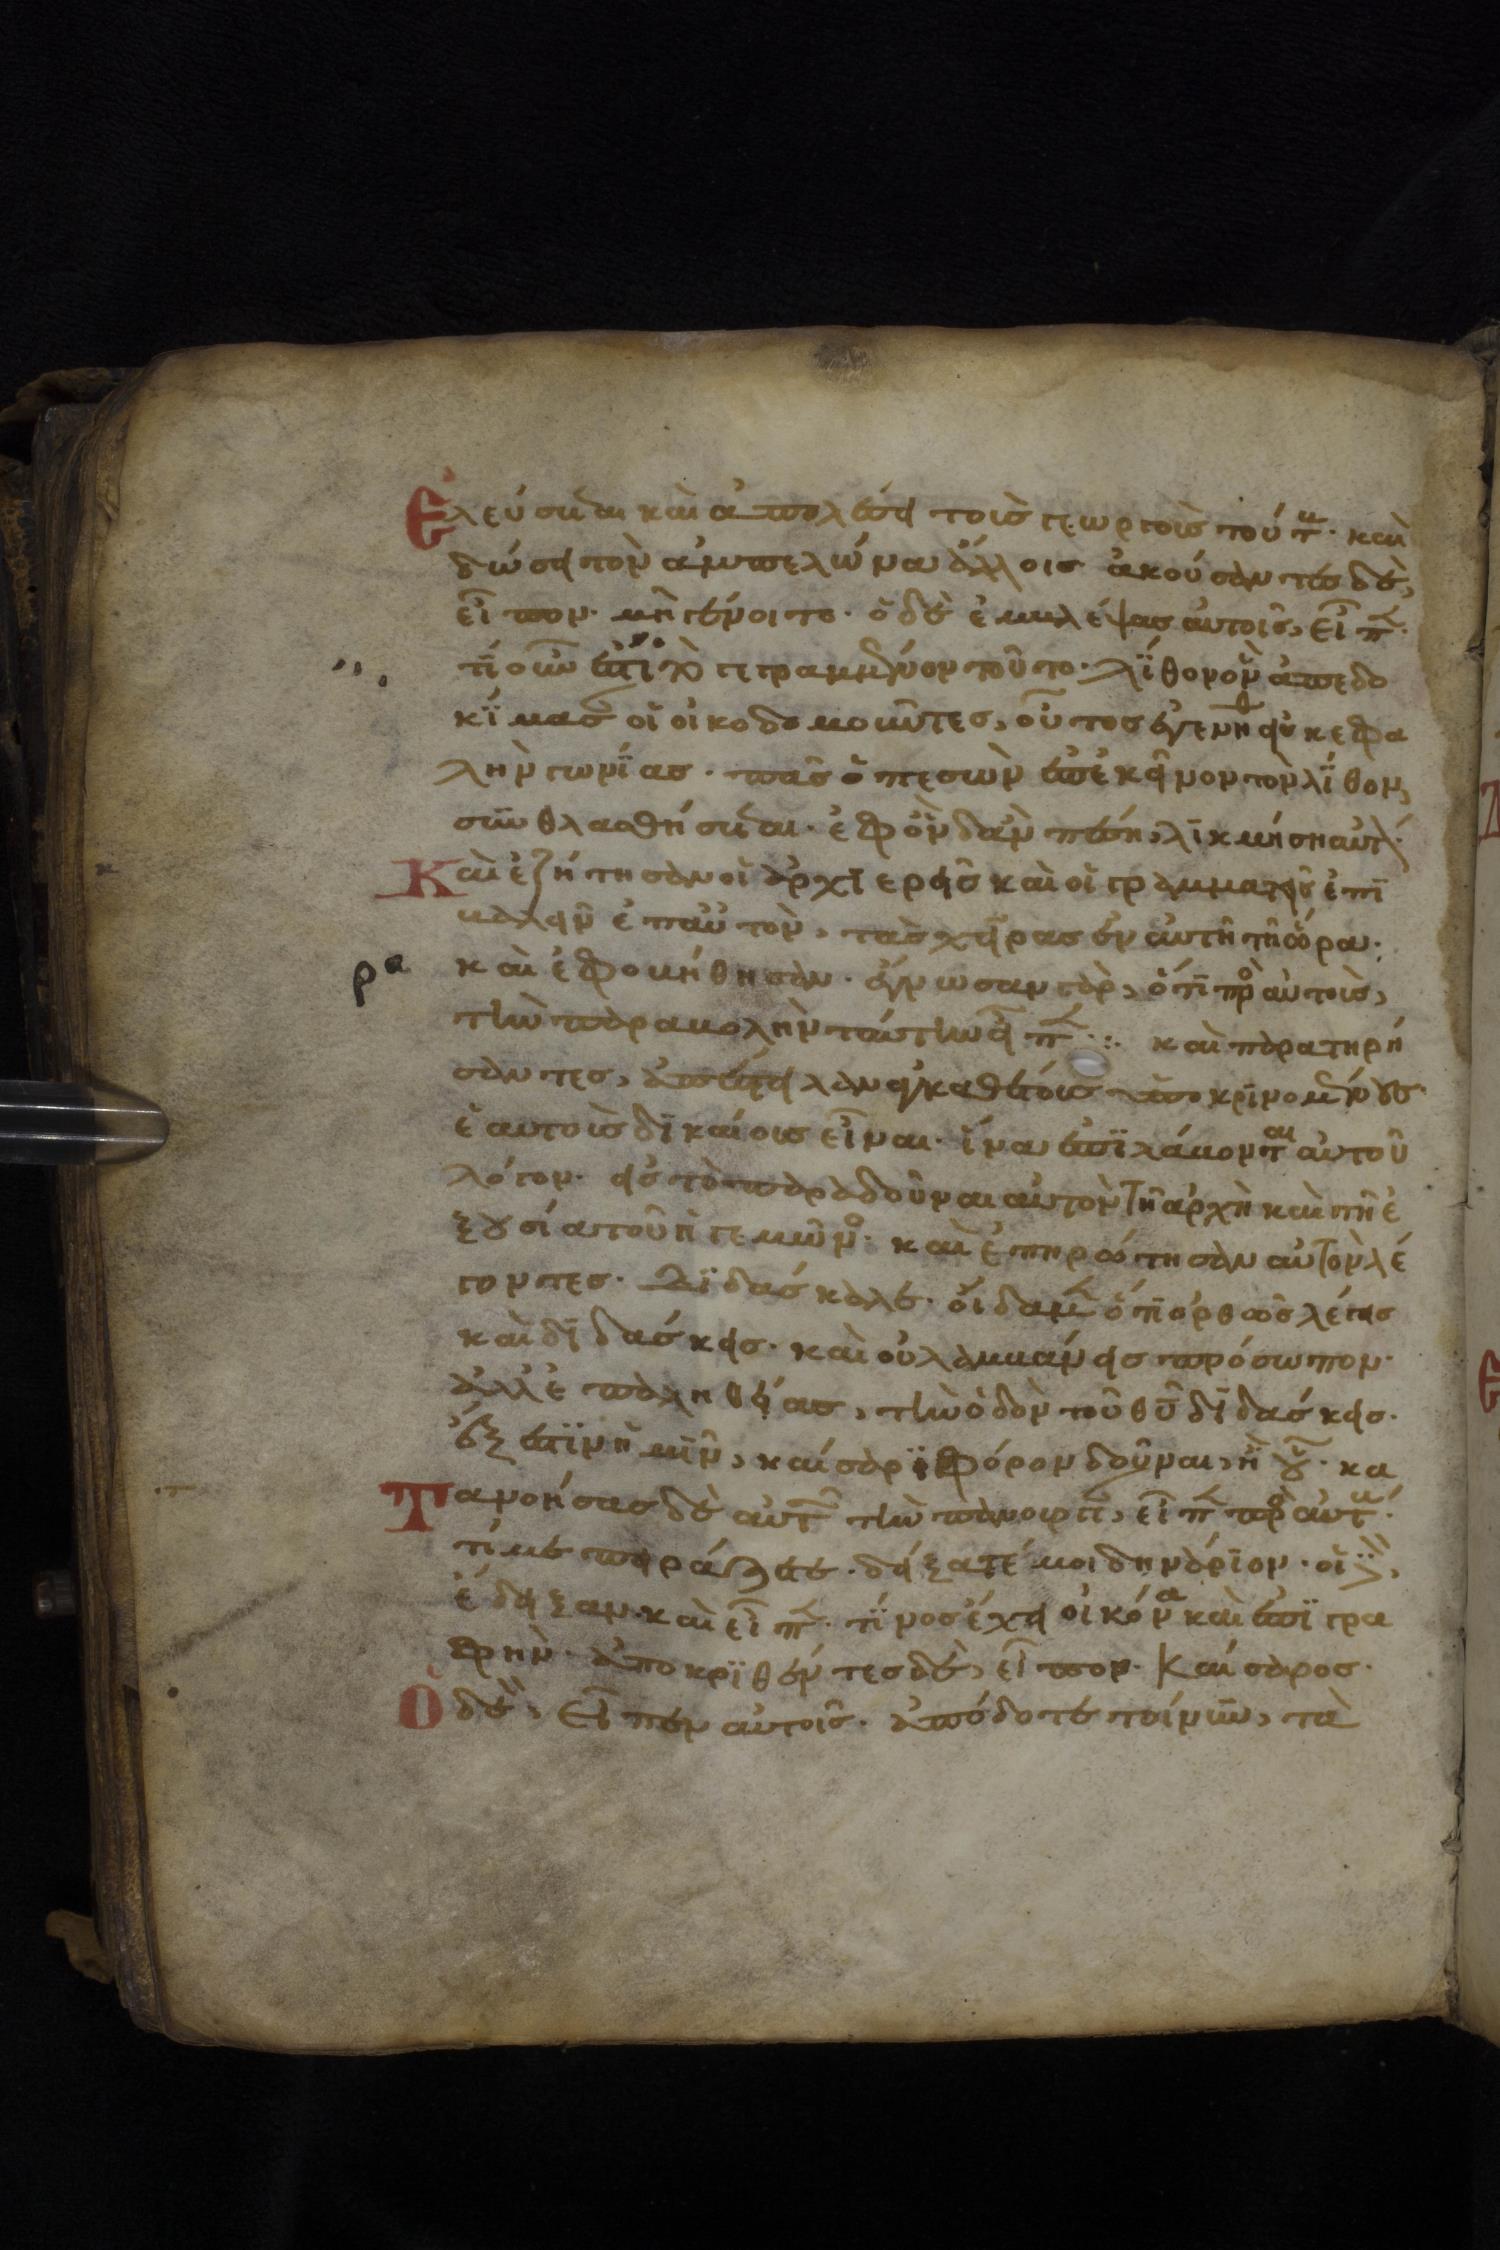 Ἐλεύσεται καὶ ἀπολέσει τοὺς γεωργοὺς τούτ· καὶ
δώσει τὸν ἀμπελῶνα ἄλλοις ἀκούσαντες δὲ,
εἶπον· μὴ γένοιτο· ὁ δὲ ἐμβλέψας αὐτοῖς, εἶπ·
τί οὖν ἐστι τὸ γεγραμμένον τοῦτο· λίθον ὃν ἀπεδο
κίμασ οἱ οἰκοδομοῦντες, οὗτος ἐγενήθ εἰς κεφα
λὴν γωνίας · πᾶς ὁ πεσὼν ἐπ' ἐκεῖνον τὸν λίθον,
συνθλασθήσεται · ἐφ' ὃν δ' ἂν πέσῃ, λικμήσῃ αὐτ·
Καὶ ἐζήτησαν οἱ ἀρχιερεῖς καὶ οἱ γραμματεῖς ἐπι
βαλεῖν ἐπ' αὐτὸν, τὰς χεῖρας ἐν αὐτῇ τῇ ὥρα·
ρα καὶ ἐφοβήθησαν · ἔγνωσαν γὰρ, ὅτι πρ αὐτοὺς,
τὴν παραβολὴν ταύτην εἶπ ·:· καὶ παρατηρή
σαντες, ἀπέστειλαν ἐγκαθέτους ὑποκρινομένους
ἑαυτοὺς δικαίους εἶναι · ἵνα ἐπιλάβονται αὐτοῦ
λόγον · εἰς τὸ παραδοῦναι αὐτὸν τῇ ἀρχῇ καὶ τῇ ἐ
ξουσία τοῦ ἡγεμῶνο· καὶ ἐπηρώτησαν αὐτὸν λέ
γοντες · Διδάσκαλε · οἴδαμ ὅτι ὀρθῶς λέγεις
καὶ διδάσκεις · καὶ οὐ λαμβάνεις πρόσωπον·
ἀλλ' ἐπ' ἀληθείας, τὴν ὁδὸν τοῦ θυ διδάσκεις·
ἔξεστιν ἡμῖν, καίσαρι φόρον δοῦναι, ἢ οὔ · κα
Τανοήσας δὲ αὐτ τὴν πανουργι, εἶπ πρ αὐτ·
τί με πειράζετε · δείξατέ μοι δηνάριον · οἱ δὲ,
ἔδειξαν· καὶ εἶπ · τίνος ἔχει οἰκόνα καὶ ἐπιγρα
φήν · ἀποκριθέντες δὲ, εἶπον · Καίσαρος·
Ὁ δὲ, εἶπεν αὐτοῖς · ἀπόδοτε τοίνυν, τὰ